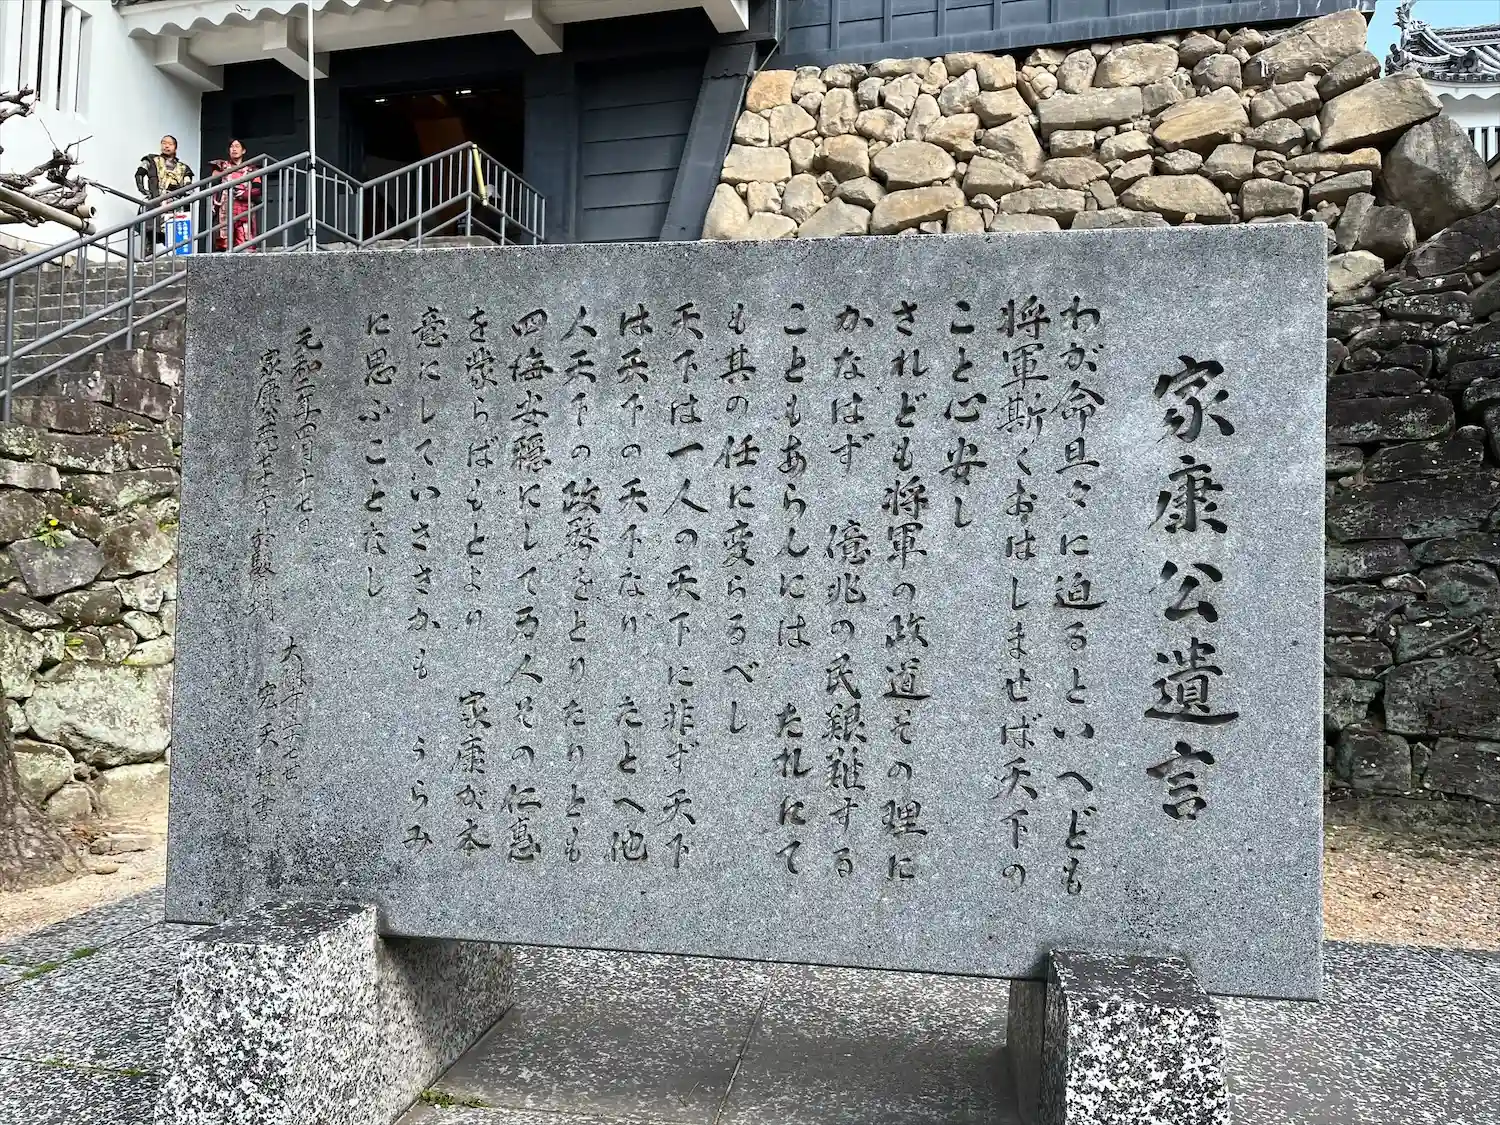 家康公遺言
わが命旦々に迫るといへども
将軍斯くおはしませば天下の
こと心安し
されども将軍の政道その理に
かなはず 億兆の民艱難する
こともあらんには たれにて
も其の任に変らるべし
天下は一人の天下に非ず天下
は天下の天下なり たとへ他
人天下の政務をとりたりとも
四海安穏にして万人その仁恵
を蒙らばもとより 家康が本
意にしていささかも うらみ
に思ふことなし
元和二年四月十七日
家康公